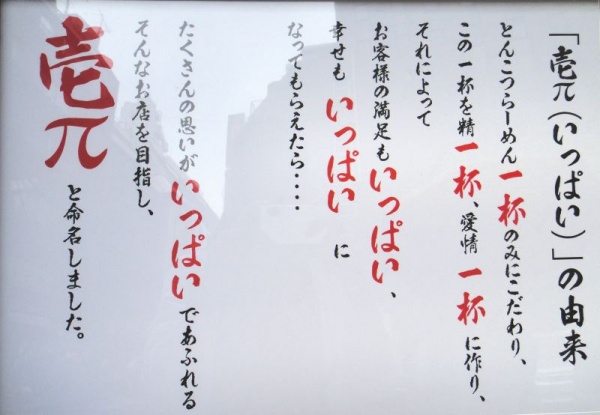 「壱π(いっぱい)」の由来
とんこつらーめん一杯のみにこだわり、
この一杯を精一杯、愛情一杯に作り、
それによって
お客様の満足もいっぱい、
幸せもいっぱいに
なってもらえたら・・・・
たくさんの思いがいっぱいであふれる
そんなお店を目指し、
壱π
と命名しました。